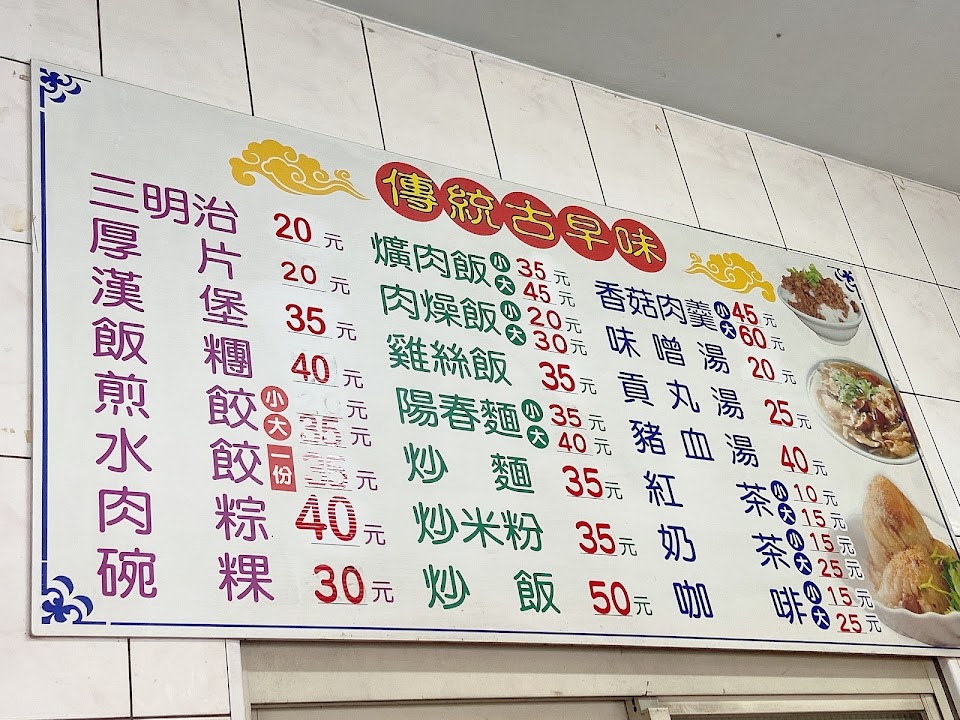 傳統古早味
三明治 20元
厚片 20元
漢堡 35元
飯糰 40元
煎餃 小 元
大 35元
水餃 一份 元
肉粽 40元
碗粿 30元
爌肉飯 小 35元
大 45元
肉燥飯 小 20元
大 30元
雞絲飯 35元
陽春麵 小 35元
大 40元
炒麵 35元
炒米粉 35元
炒飯 50元
香菇肉羹 小 45元
大 60元
味噌湯 20元
貢丸湯 25元
豬血湯 40元
紅茶 小 10元
大 15元
奶茶 小 15元
大 25元
咖啡 小 15元
大 25元